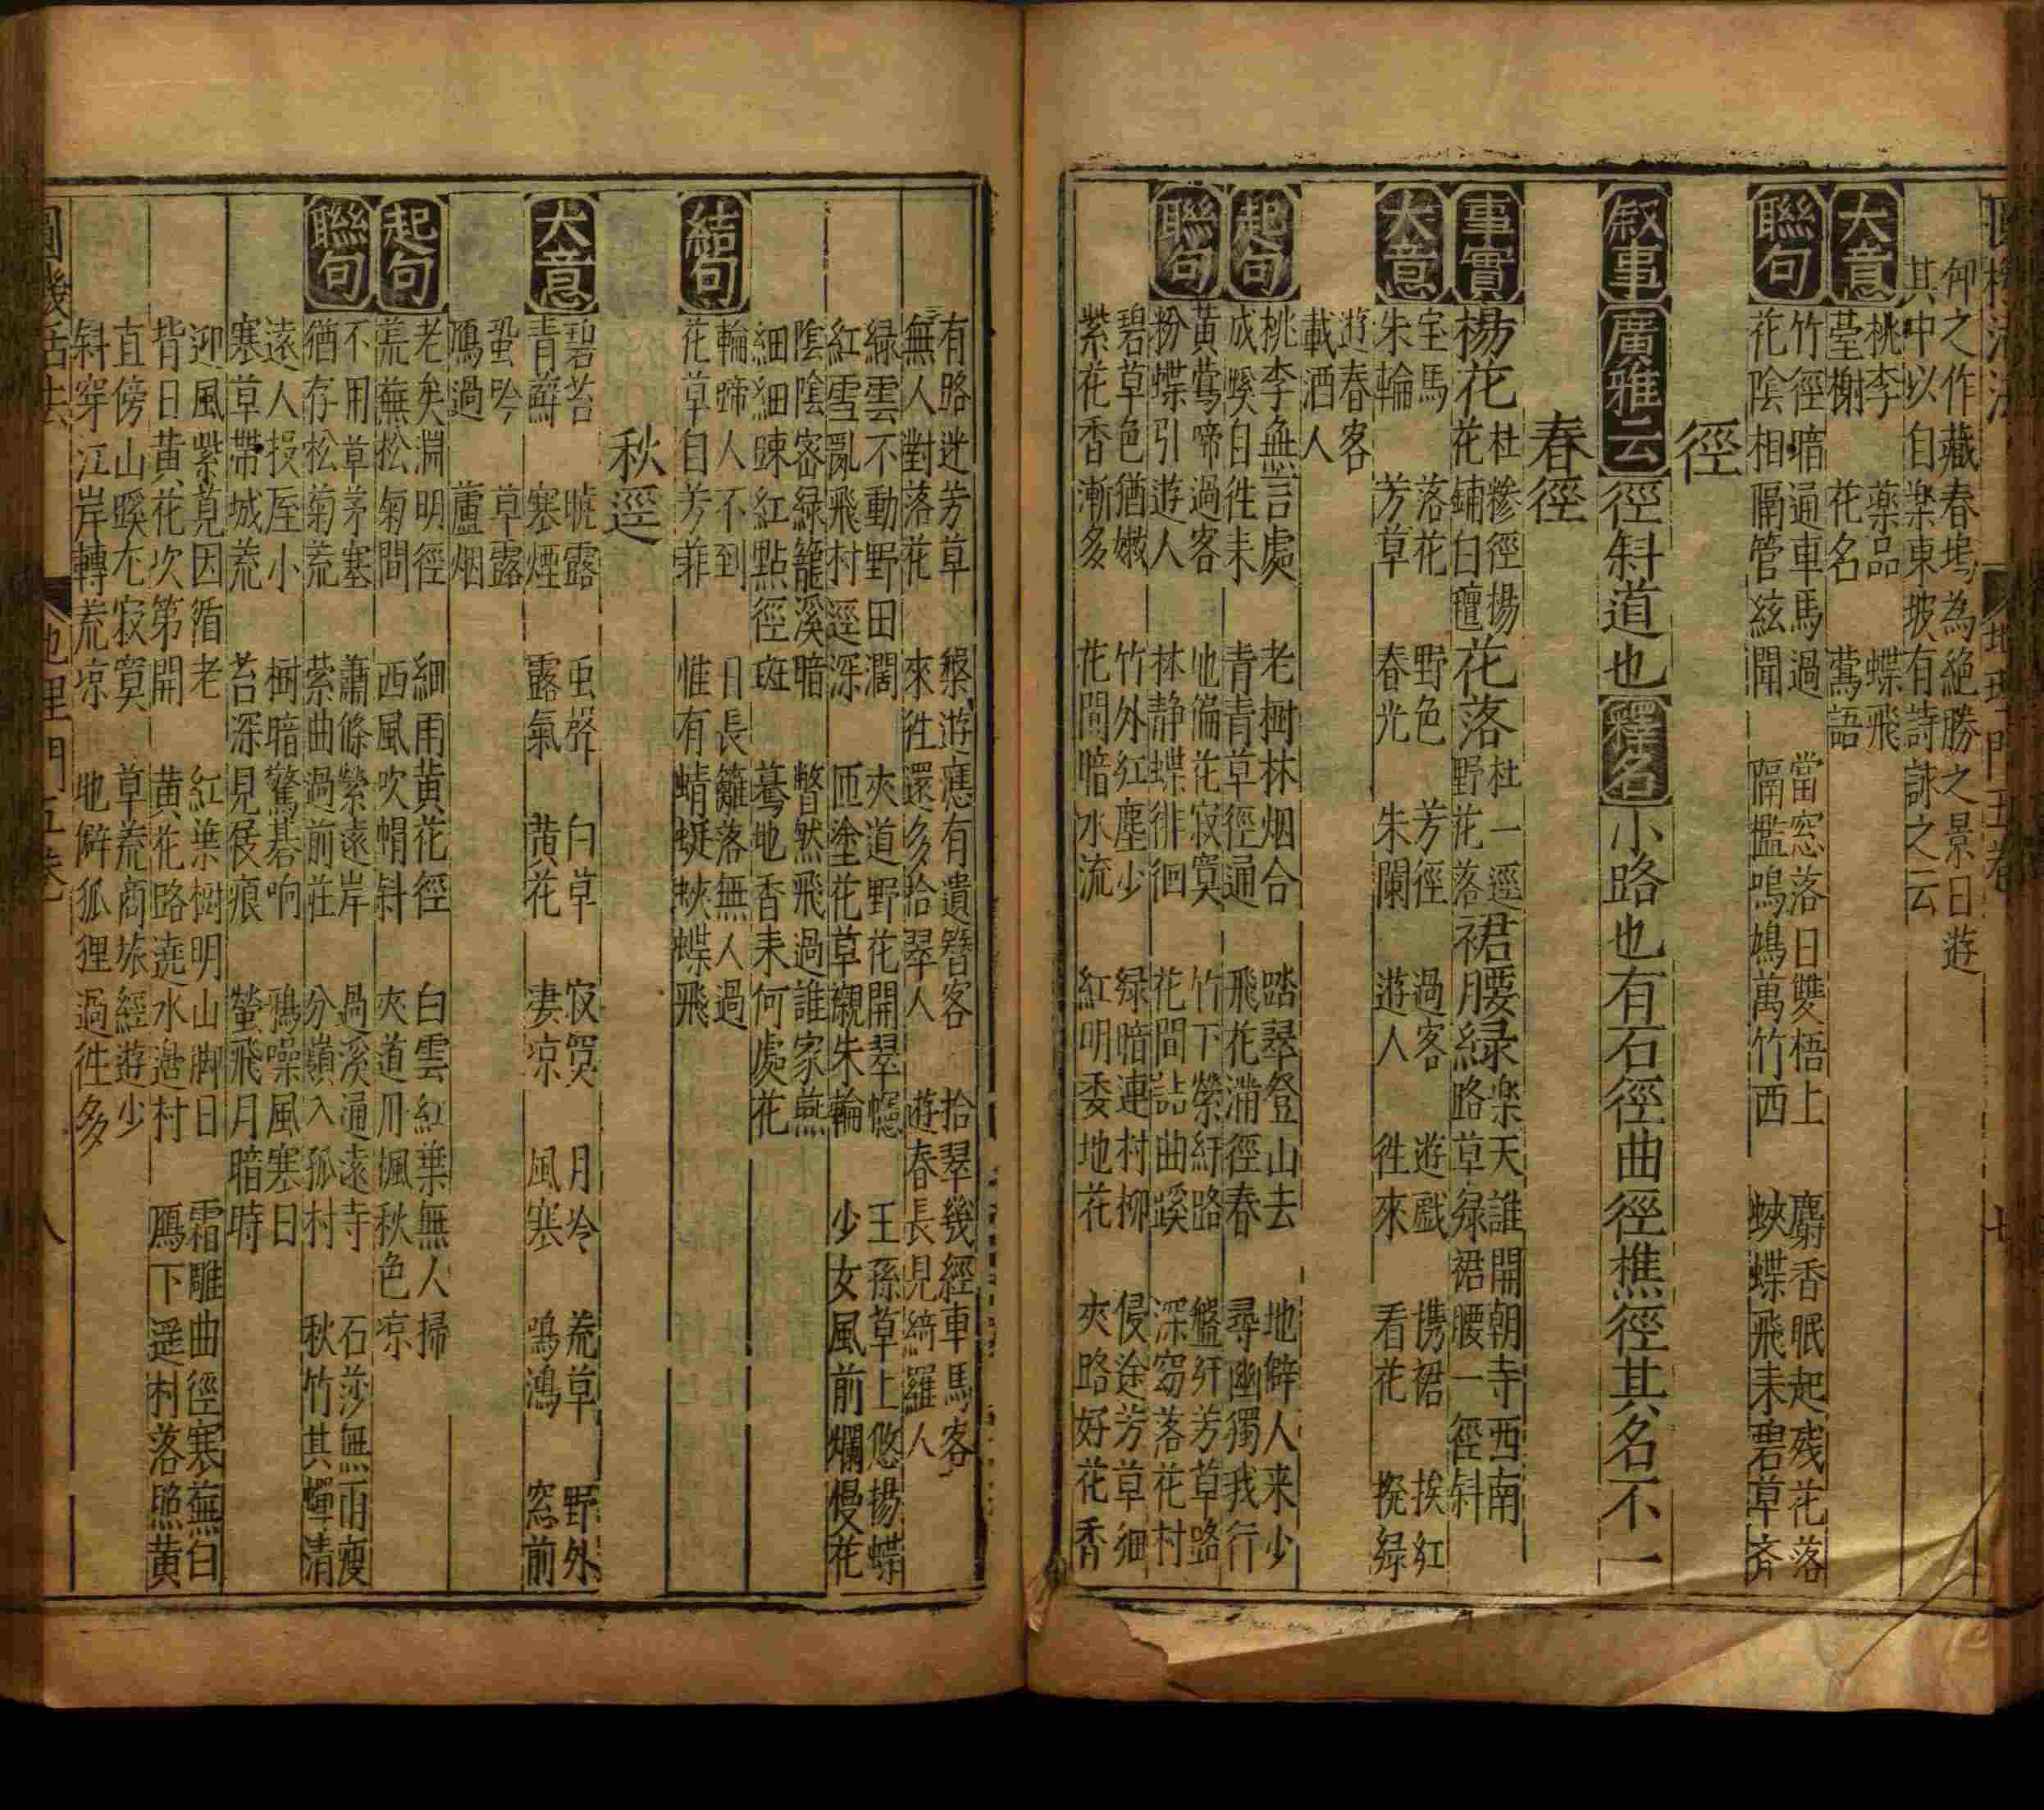 仰之作藏春塢為絶勝之景日遊
其中以自楽東坡有詩詠之云
大意 桃李 藥品 蝶飛
臺榭 花名 鶯語
聯句 竹徑暗通車馬過 當窓落日雙梧上 麝香眠起残花落
花陰相隔管絃聞 隔檻鳴鳩萬竹西 蛺蝶飛来碧草斉
徑
叙事 廣雅云 徑斜道也 釋名 小路也有石徑曲徑樵徑其名不一
春徑
事實 楊花 杜糝徑楊花鋪白氊 花落 杜一逕野花落 裙腰緑 楽天誰開朝寺西南路草緑裙腰一徑斜
大意 宝馬 落花 野色 芳徑 過客 遊戯 携裙 挨紅
朱輪 芳草 春光 朱闌 遊人 徃來 看花 挼緑
遊春客
載酒人
起句 桃李無言處 老樹林烟合 踏翠登山去 地僻人来少
成蹊自徃来 青青草徑通 飛花滿徑春 尋幽獨我行
黄鶯啼過客 地偏花寂寞 竹下縈紆路 盤紆芳草路
聯句 粉蝶引遊人 林静蝶徘徊 花間詰曲蹊 深窈落花村
碧草色猶嫩 竹外紅塵少 緑暗連村柳 侵途芳草細
紫花香漸多 花間暗水流 紅明委地花 夾路好花香
有路迷芳草 縏遊應有遺簪客 拾翠幾經車馬客
無人對落花 來徃還多拾翠人 遊春長見綺羅人
緑雲不動野田濶 夾道野花開翠幰 王孫草上悠揚蝶
紅雪亂飛村逕深 匝塗花草襯朱輪 少女風前爛熳花
陰陰密緑籠溪暗 瞥然飛過誰家燕
細細晾紅點徑斑 驀地香来何處花
結句 輪蹄人不到 日長籬落無人過
花草自芳菲 惟有蜻蜓蛺蝶飛
秋逕
大意 碧苔 曉露 虫聲 白草 寂寞 月冷 荒草 野外
青蘚 寒煙 露氣 黄花 凄凉 風寒 鳴鴻 窓前
蛩吟 草露
鴈過 蘆烟
起句 老矣淵明徑 細雨黄花徑 白雲紅葉無人掃
荒蕪松菊間 西風吹帽斜 夾道川楓秋色凉
不用草茅塞 蕭條縈遠岸 過溪通遠寺 石莎無雨瘦
聯句 猶存松菊荒 縈曲過前莊 分嶺入孤村 秋竹其蟬清
遠人投㕓小 樹暗驚碁响 鴉噪風寒日
塞草帶城荒 苔深見屐痕 螢飛月暗時
迎風紫莧因循老 紅葉樹明山脚日 霜雕曲徑寒蕪白
背日黄花次第開 黄花路遶水邉村 鴈下遥村落照黄
直傍山蹊冘寂寞 草荒商旅經遊少
斜穿江岸轉荒凉 地僻狐狸過徃多
地理門五卷 八